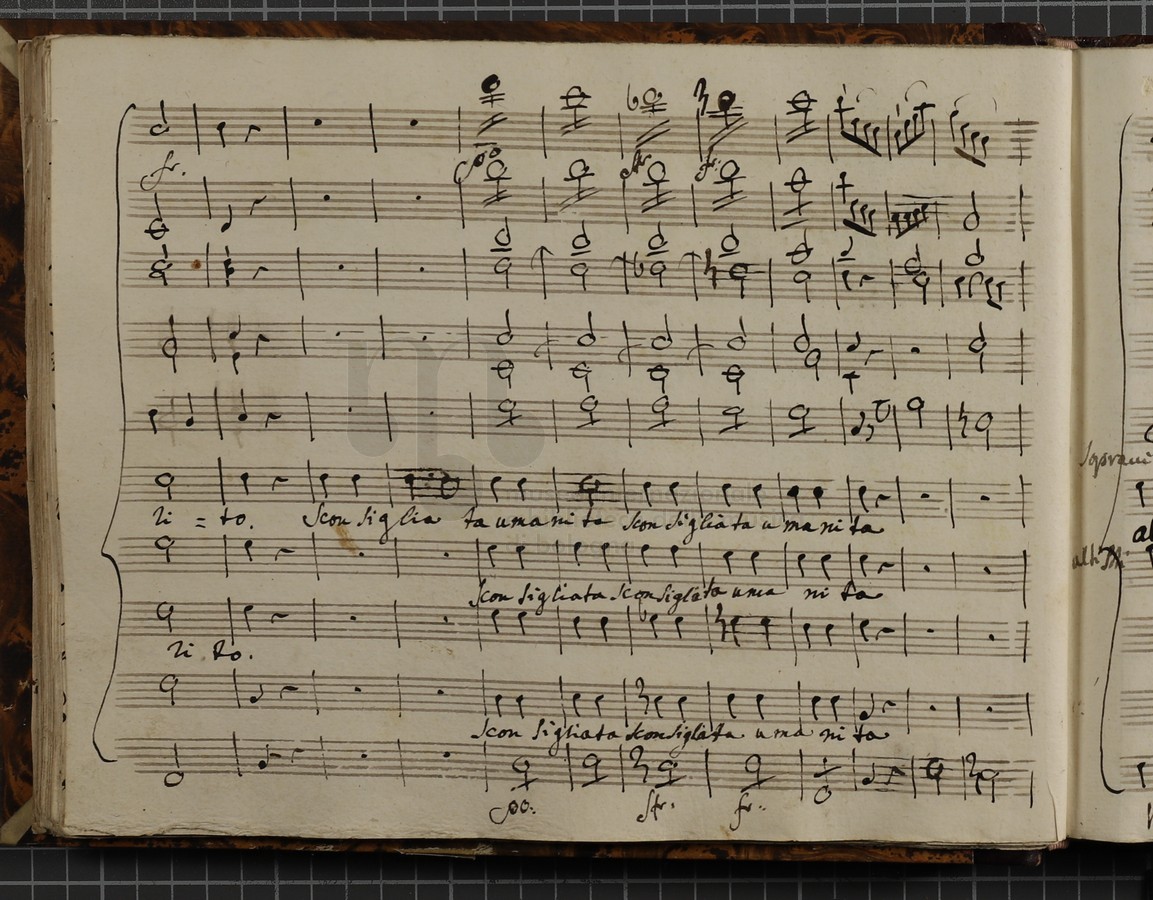 fr.
fr.
zi = to. Sconsiglia ta umanita sconsigliata umanita
Sconsigliata sconsigliata uma nita
zi to.
Sconsigliata sconsigliata umanita
fr.
Soprani